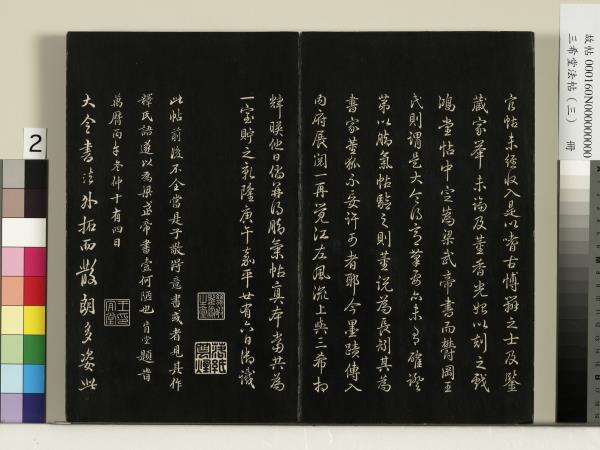 官帖未經收入是以唘古博雅之士及鑒
藏家罕未論及董香光雖以刻之戲
鴻堂帖中定為梁武帝書而鬱岡王
氏則謂是大令得意筆要亦未有確證
第以腦氣帖驗之則董說為長刻其為
書家董狐不妄許可者耶今墨蹟傳入
內府展閱一再覺江左風流上與三希相
輝暎他日儻并得腦氣帖真本當共為
一室貯之乾隆庚午嘉平廿有六日御識
此帖前後不全當是子敬得意書或者見其作
釋氏語遂以為梁武帝書壹何陋也肯堂題當
萬曆丙午冬仲十有四日
大令書法外拓而散朗多姿此
王氏肯堂
2
故帖 000160N000000000
三希堂法帖（三） 冊